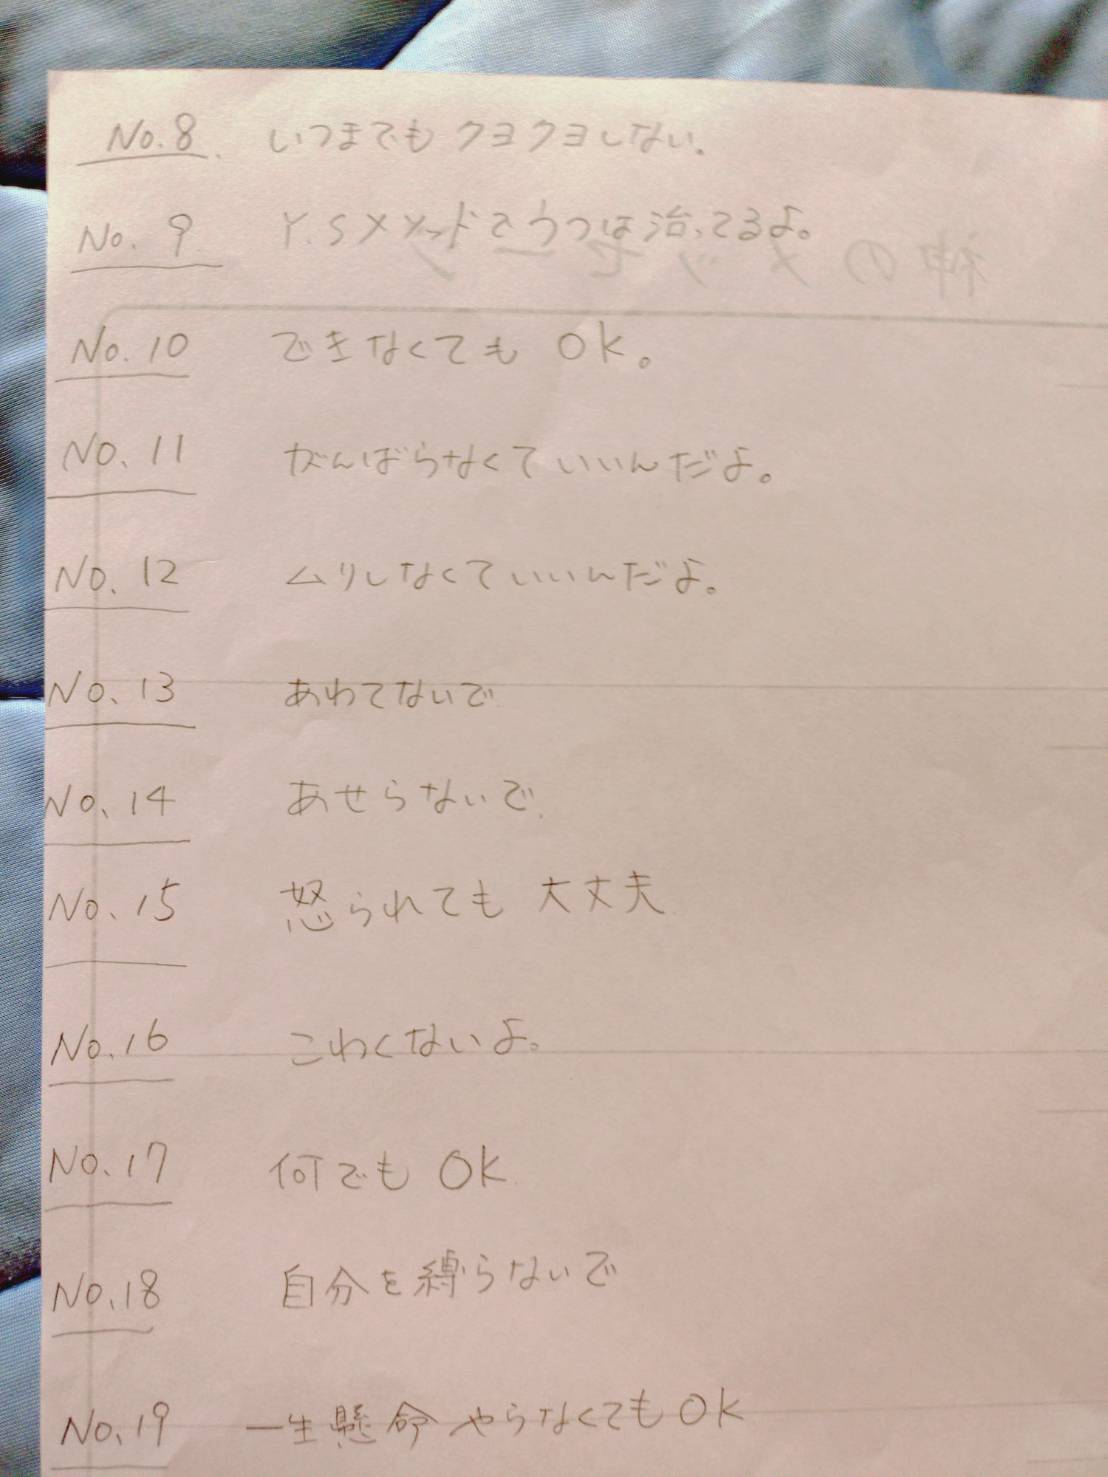 No.8. いつまでもクヨクヨしない.
No. 9 Y.Sメソッドでうつは治ってるよ。
神のメッセージ
No.10 できなくても OK。
No.11 がんばらなくていいんだよ。
No.12 ムリしなくていいんだよ。
No.13 あわてないで
No.14 あせらないで
No.15 怒られても 大丈夫
No.16 こわくないよ。
No.17 何でも OK
No.18 自分を縛らないで
No.19 一生懸命やらなくてもOK